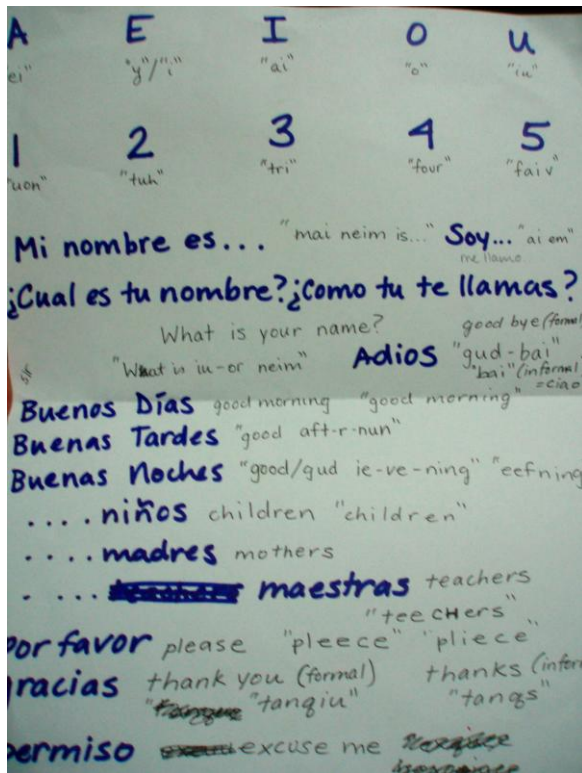 A E I O U
"ei" "y"/"i" "ai" "o" "iu"
1 2 3 4 5
"uon" "tuh" "tri" "four" "faiv"
Mi nombre es... "mai neim is..." Soy... "ai em"
me llamo
¿Cual es tu nombre? ¿Como tu te llamas?
What is your name? good bye (formal
"What is iu-or neim" Adios "gud-bai"
"bai" (informal
= ciao
Buenos Días good morning "good morning"
Buenas Tardes "good aft-r-nun"
Buenas Noches "good/gud ie-ve-ning" "eefning
....niños children "children"
....madres mothers
.... maestras teachers
"teeCHers"
Por favor please "pleece" "pliece"
gracias thank you (formal) thanks (infor
"tanqiu" "tanqs"
permiso excuse me